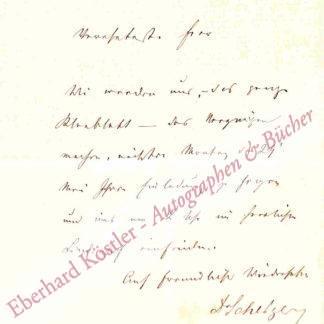 Verehrtester Herr
Wir werden uns, – das ganze
Kleeblatt – das Vergnügen
machen, nächsten Montag
Ihrer Einladung zu folgen
und uns um Uhr im
einfinden.
Auf freundliches Wiedersehen
Eberhard Köstler - Autographen & Bücher